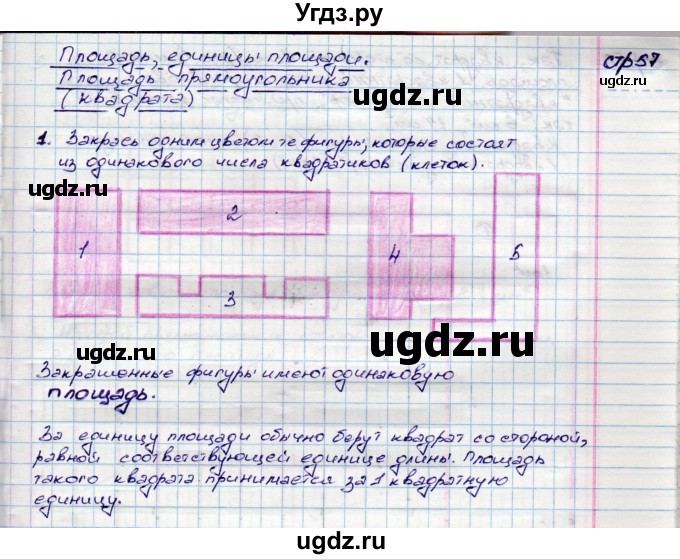 Угдз.ру
стр57
Площадь, единицы площади.
Площадь прямоугольника
(квадрата)
ugdz.ru
ugdz.ru
1. Закрась одним цветом те фигуры, которые состоят
из одинакового числа квадратиков (клеток).
ugdz.ru
1
2
3
4
5
ugdz.ru
ugdz.ru
ugdz.ru
Закрашенные фигуры имеют одинаковую
площадь.
ugdz.ru
За единицу площади обычно берут квадрат со стороной,
равной соответствующей единице длины. Площадь
такого квадрата принимается за 1 квадратную
единицу.
ugdz.ru
ugdz.ru
ugdz.ru
ugdz.ru